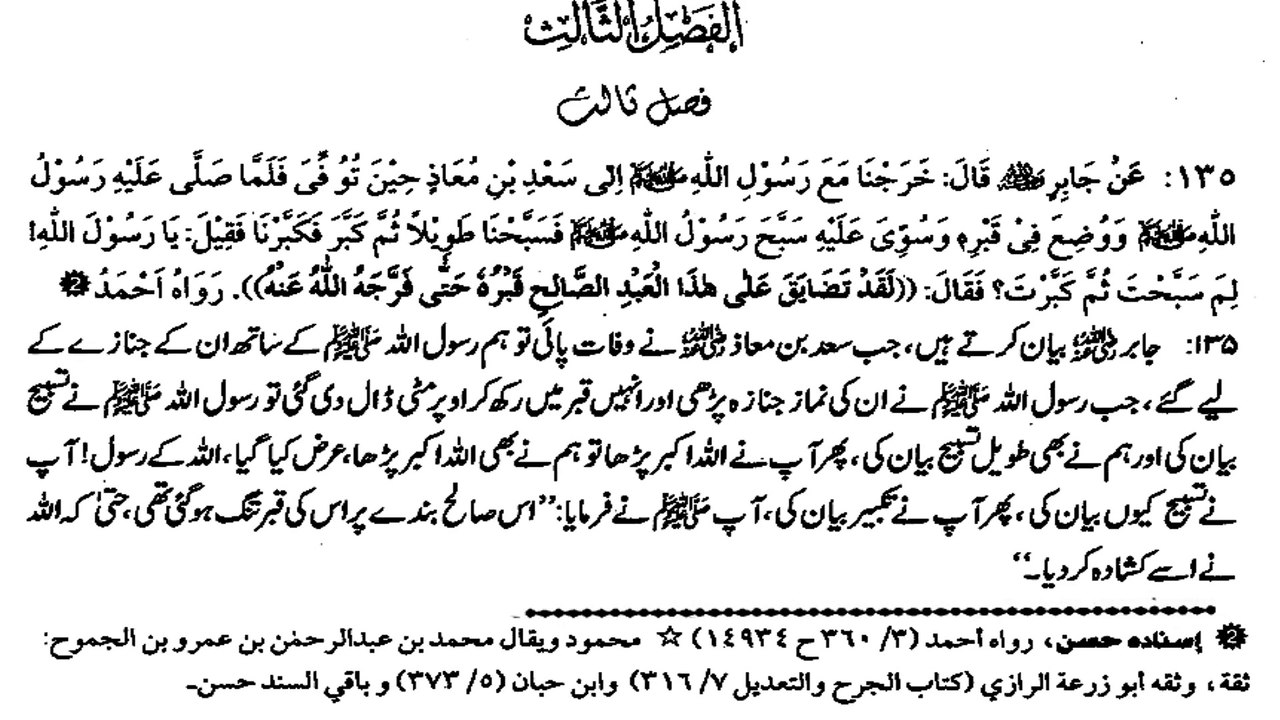 اَلْفَصْلُ الثَّالِثُ
فصل ثالث
۱۳۵: عَنْ جَابِرٍ رضي الله عنه قَالَ: خَرَجْنَا مَعَ رَسُوْلِ اللّٰهِ ﷺ اِلٰى سَعْدِ بْنِ مُعَاذٍ حِيْنَ تُوُفِّىَ فَلَمَّا صَلَّى عَلَيْهِ رَسُوْلُ
اللّٰهِ ﷺ وَوُضِعَ فِىْ قَبْرِهٖ وَسُوِّىَ عَلَيْهِ سَبَّحَ رَسُوْلُ اللّٰهِ ﷺ فَسَبَّحْنَا طَوِيْلاً ثُمَّ كَبَّرَ فَكَبَّرْنَا فَقِيْلَ: يَا رَسُوْلَ اللّٰهِ!
لِمَ سَبَّحْتَ ثُمَّ كَبَّرْتَ؟ فَقَالَ: ((لَقَدْ تَضَايَقَ عَلٰى هٰذَا الْعَبْدِ الصَّالِحِ قَبْرُهٗ حَتّٰى فَرَّجَهُ اللّٰهُ عَنْهُ)). رَوَاهُ اَحْمَدُ ❷
۱۳۵: جابر رضي الله عنه بیان کرتے ہیں، جب سعد بن معاذ رضي الله عنه نے وفات پائی تو ہم رسول اللہ ﷺ کے ساتھ ان کے جنازے کے
لیے گئے، جب رسول اللہ ﷺ نے ان کی نماز جنازہ پڑھی اور انہیں قبر میں رکھ کر اوپر مٹی ڈال دی گئی تو رسول اللہ ﷺ نے تسبیح
بیان کی اور ہم نے بھی طویل تسبیح بیان کی، پھر آپ نے اللہ اکبر پڑھا تو ہم نے بھی اللہ اکبر پڑھا، عرض کیا گیا، اللہ کے رسول! آپ
نے تسبیح کیوں بیان کی، پھر آپ نے تکبیر بیان کی، آپ ﷺ نے فرمایا: ’’اس صالح بندے پر اس کی قبر تنگ ہو گئی تھی، حتیٰ کہ اللہ
نے اسے کشادہ کر دیا۔‘‘
❷ إسناده حسن، رواه أحمد (۳/ ۳٦۰ ح ۱٤۹۳٤) ☆ محمود ويقال محمد بن عبدالرحمٰن بن عمرو بن الجموح:
ثقة، وثقه أبو زرعة الرازي (كتاب الجرح والتعديل ۷/ ۳۱٦) وابن حبان (۵/ ۳۷۳) و باقي السند حسن۔